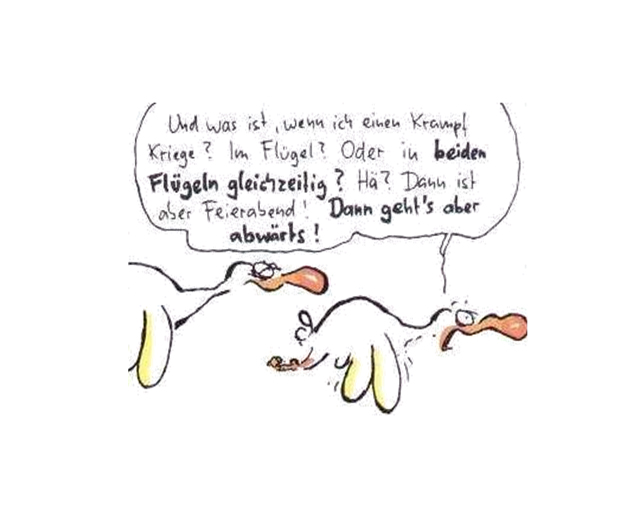 Und was ist, wenn ich einen Krampf
Kriege? Im Flügel? Oder in beiden
Flügeln gleichzeitig? Hä? Dann ist
aber Feierabend! Dann geht's aber
abwärts!